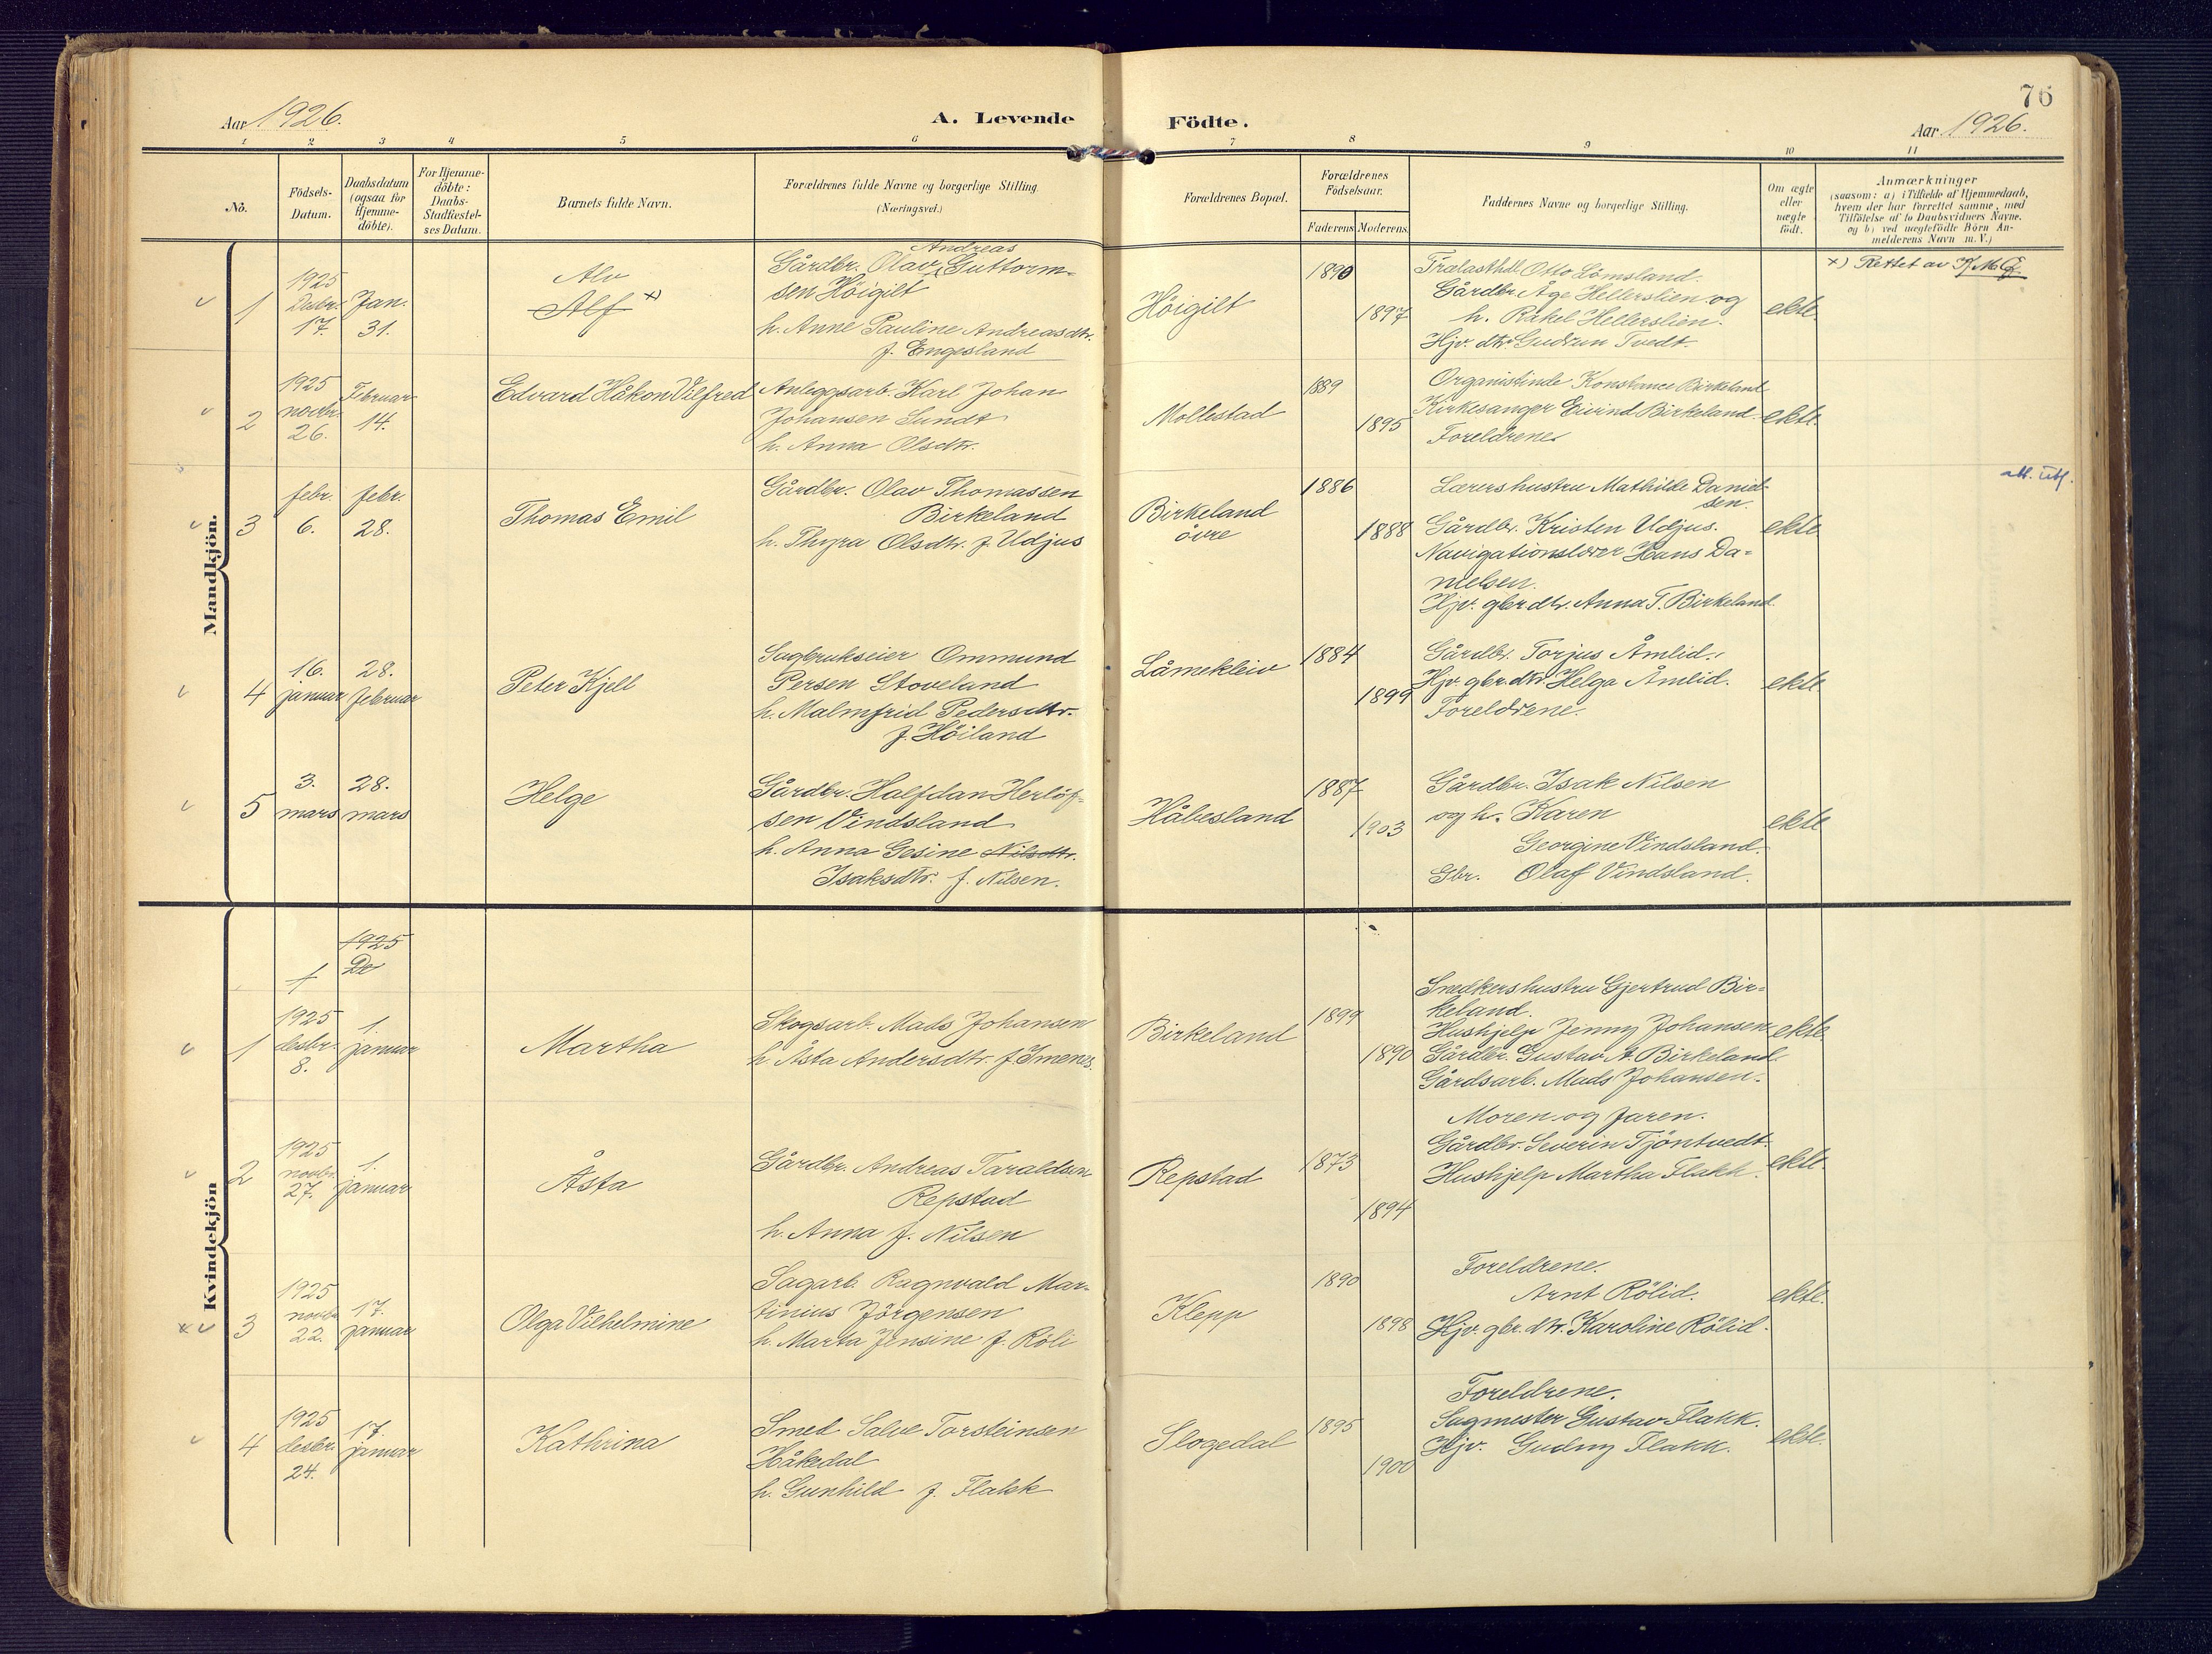 76
Aar 1926.
A. Levende Födte.
Aar 1926.
1 2 3 4 5 6 7 8 9 10 11
No.
Födsels-
Datum.
Daabsdatum
(ogsaa for
Hjemme-
döbte).
For Hjemme-
döbte:
Daabs-
Stadfæstel-
ses Datum.
Barnets fulde Navn.
Forældrenes fulde Navne og borgerlige Stilling.
(Næringsvei.)
Forældrenes Bopæl.
Forældrenes
Födselsaar.
Faderens
Moderens
Faddernes Navne og borgerlige Stilling.
Om ægte
eller
uægte
födt.
Anmærkninger
(saasom: a) i Tilfælde af Hjemmedaab,
hvem der har forrettet samme, med
Tilföielse af to Daabsvidners Navne.
og b) ved uægtefödte Börn An-
melderens Navn m. V.)
Mandkjön.
1
1925
Desbr.
17.
Jan.
31.
Alv
Alf x)
Andreas
Gårdbr. Olav Guttorm-
sen Höigilt
h. Anne Pauline Andreasdtr.
f. Engesland
Höigilt
1890
1897
Trælasthdl. Otto Lömsland.
Gårdbr. Åge Hellerslien og
h. Rakel Hellerslien.
Hjv. dtr. Gudrun Tvedt.
ekte.
x) Rettet av
2
1925
novbr.
26.
Februar
14.
Edvard Håkon Vilfred
Anleggsarb. Karl Johan
Johansen Sundt
h. Anna Olsdtr.
Mollestad
1889
1895
Organistinde Konstance Birkeland
Kirkesanger Eivind Birkeland.
Foreldrene
ekte.
3
febr.
6.
febr.
28.
Thomas Emil
Gårdbr. Olav Thomassen
Birkeland
h. Thyra Olsdtr. f. Udjus
Birkeland
övre
1886
1888
Lærershustru Mathilde Daniel-
sen.
Gårdbr. Kristen Udjus.
Navigationslærer Hans Da-
nielsen.
Hjv. gbrdtr. Anna T. Birkeland.
ekte
att. utf.
4
16.
januar
28.
februar
Peter Kjell
Sagbrukseier Ommund
Persen Stoveland
h. Malmfrid Pedersdtr.
f. Höiland
Låmekleiv
1884
1899
Gårdbr. Torjus Åmlid.
Hjv. gbr.dtr. Helga Åmlid.
Foreldrene.
ekte
5
3.
mars
28.
mars
Helge
Gårdbr. Halfdan Herlöf-
sen Vindsland
h. Anna Gesine Nilsdtr.
Isaksdtr. f. Nilsen.
Håbesland
1887
1903
Gårdbr. Isak Nilsen
og h. Karen
Georgine Vindsland.
Gbr. Olaf Vindsland.
ekte
Kvindekjön
1
1925
De
1
1925
desbr.
8.
1.
januar
Martha
Skogsarb. Mads Johansen
h. Åsta Andersdtr. f. Imenes.
Birkeland
1899
1890
Snedkershustru Gjertrud Bir-
keland.
Hushjelp Jenny Johansen
Gårdbr. Gustav A. Birkeland.
Gårdsarb. Mads Johansen.
ekte.
2
1925
novbr.
27.
1.
januar
Åsta
Gårdbr. Andreas Taraldsen
Repstad
h. Anna f. Nilsen
Repstad
1873
1894
Moren og faren.
Gårdbr. Severin Tjöntvedt.
Hushjelp Martha Flakk.
ekte.
3
1925
novbr.
22.
17.
januar
Olga Vilhelmine
Sagarb. Ragnvald Mar-
tinius Jörgensen
h. Marta Jensine f. Röli
Klepp
1890
1898
Foreldrene.
Arnt Rölid.
Hjv. gbr. dtr. Karoline Rölid.
ekte.
4
1925
desbr.
24.
17.
januar
Kathrina
Smed Salve Torsteinsen
Håkedal
h. Gunhild f. Flakk
Slogedal
1895
1900
Foreldrene.
Sagmester Gustav Flakk.
Hjv. Gudny Flakk.
ekte.